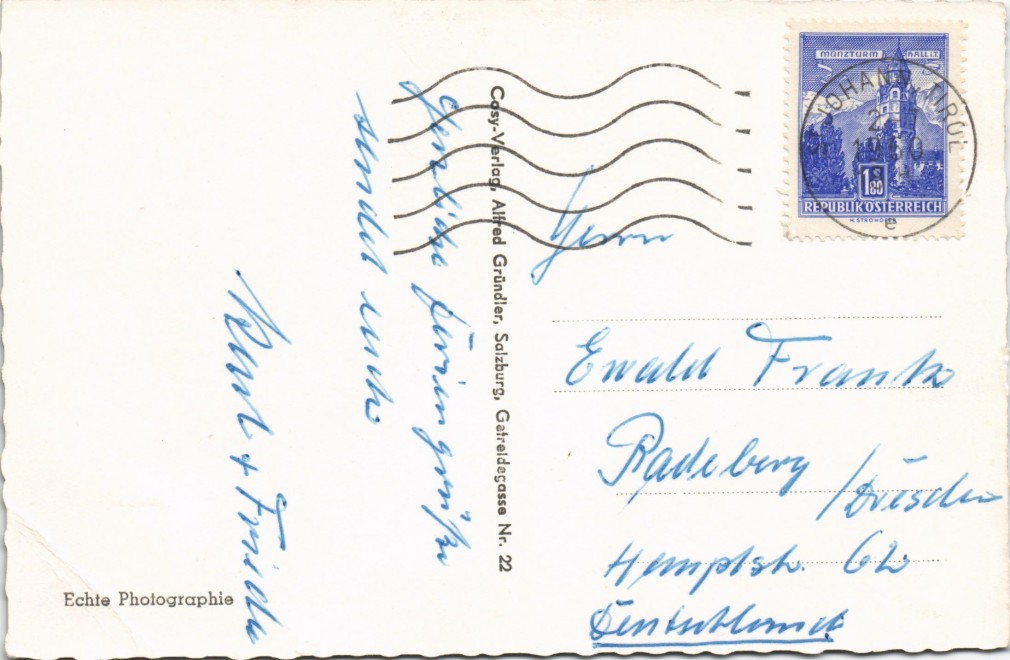 Herzliche Feriengrüße
sendet euch
Kurt + Frieda
Cosy-Verlag, Alfred Gründler, Salzburg, Getreidegasse Nr. 22
Echte Photographie
MÜNZTURM HALL I.T.
1.80
REPUBLIK ÖSTERREICH
ST. JOHANN, TIROL
1960
e
Herrn
Ewald Frank
Radeberg
/Dresden
Hauptstr. 62
Deutschland